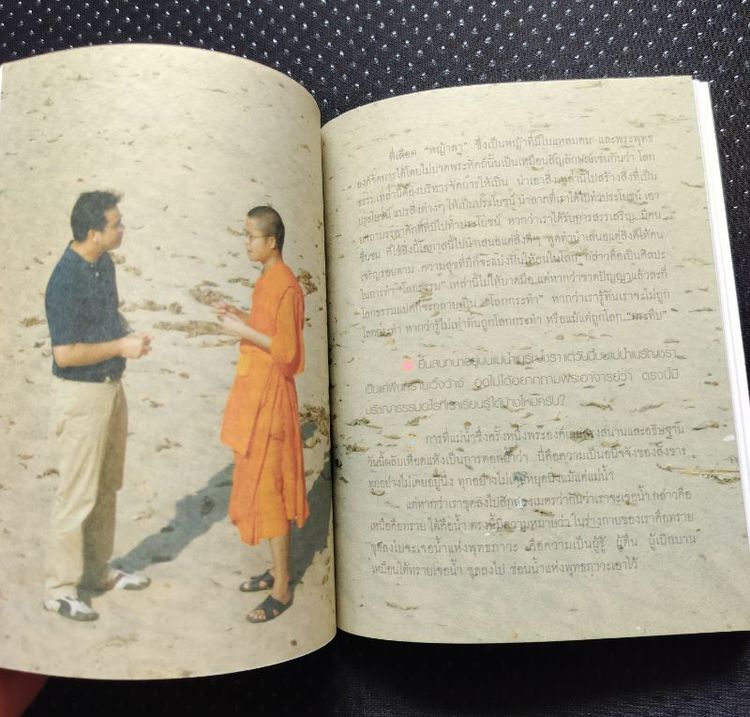 ที่เลือก "หญ้าคา" ซึ่งเป็นหญ้าที่มีใบแหลมคม และพระพุทธ
องค์จัดการได้โดยไม่บาดพระหัตถ์นั้นเป็นเหมือนสัญลักษณ์เช่นกันว่า โลก
ธรรมเหล่านี้ต้องบริหารจัดการให้เป็น นำเอาสิ่งเหล่านี้ไปสร้างสิ่งที่เป็น
ประโยชน์ แปรสิ่งต่างๆ ให้เป็นประโยชน์ นำลาภที่เราได้ไปทำประโยชน์ เอา
ยศถาบรรดาศักดิ์ที่มีไปทำประโยชน์ หากว่าเราได้รับการสรรเสริญ มีคน
ชื่นชม ก็ใช้สิ่งนี้โอกาสนี้ไปนำเสนอแต่สิ่งดีๆ พูดทำนำเสนอแต่สิ่งดีให้คน
เจริญรอยตาม ความสุขที่มีก็จะแบ่งปันให้คนในโลก กล่าวคือเป็นศิลปะ
ในการทำ "โลกธรรม" เหล่านี้ไม่ให้บาดมือ แต่หากว่าขาดปัญญาแล้วละก็
โลกธรรมแปดก็จะกลายเป็น "โลกกระทำ" หากว่าเรารู้ทันเราจะไม่ถูก
โลกกระทำ หากว่ารู้ไม่เท่าทันถูกโลกกระทำ หรือแม้แต่ถูกโลก "กระทืบ"
ยืนสนทนาอยู่บนแม่น้ำเนรัญชรา แต่วันนี้บนแม่น้ำเนรัญชรา
เป็นแค่ผืนทรายเวิ้งว้าง อดไม่ได้อยากถามพระอาจารย์ว่า ตรงนี้มี
ปริศนาธรรมอะไรที่เราเรียนรู้ได้บ้างไหมครับ?
การที่แม่น้ำซึ่งครั้งหนึ่งพระองค์เคยลงสนานและอธิษฐาน
วันนี้ผลับเหือดแห้งเป็นการตอกย้ำว่า นี่คือความเป็นอนิจจังของสังขาร
ทุกอย่างไม่เคยอยู่นิ่ง ทุกอย่างไม่เคยหยุดนิ่งแม้แต่แม่น้ำ
แต่หากว่าเราขุดลงไปสักสองเมตรว่ากันว่าเราจะเจอน้ำ กล่าวคือ
เหนือคือทราย ใต้คือน้ำ ตรงนี้มีความหมายว่า ในร่างกายของเราคือทราย
ขุดลงไปจะเจอน้ำแห่งพุทธภาวะ คือความเป็นผู้รู้ ผู้ตื่น ผู้เบิกบาน
เหมือนใต้ทรายเจอน้ำ ขุดลงไป ซ่อนน้ำแห่งพุทธภาวะเอาไว้